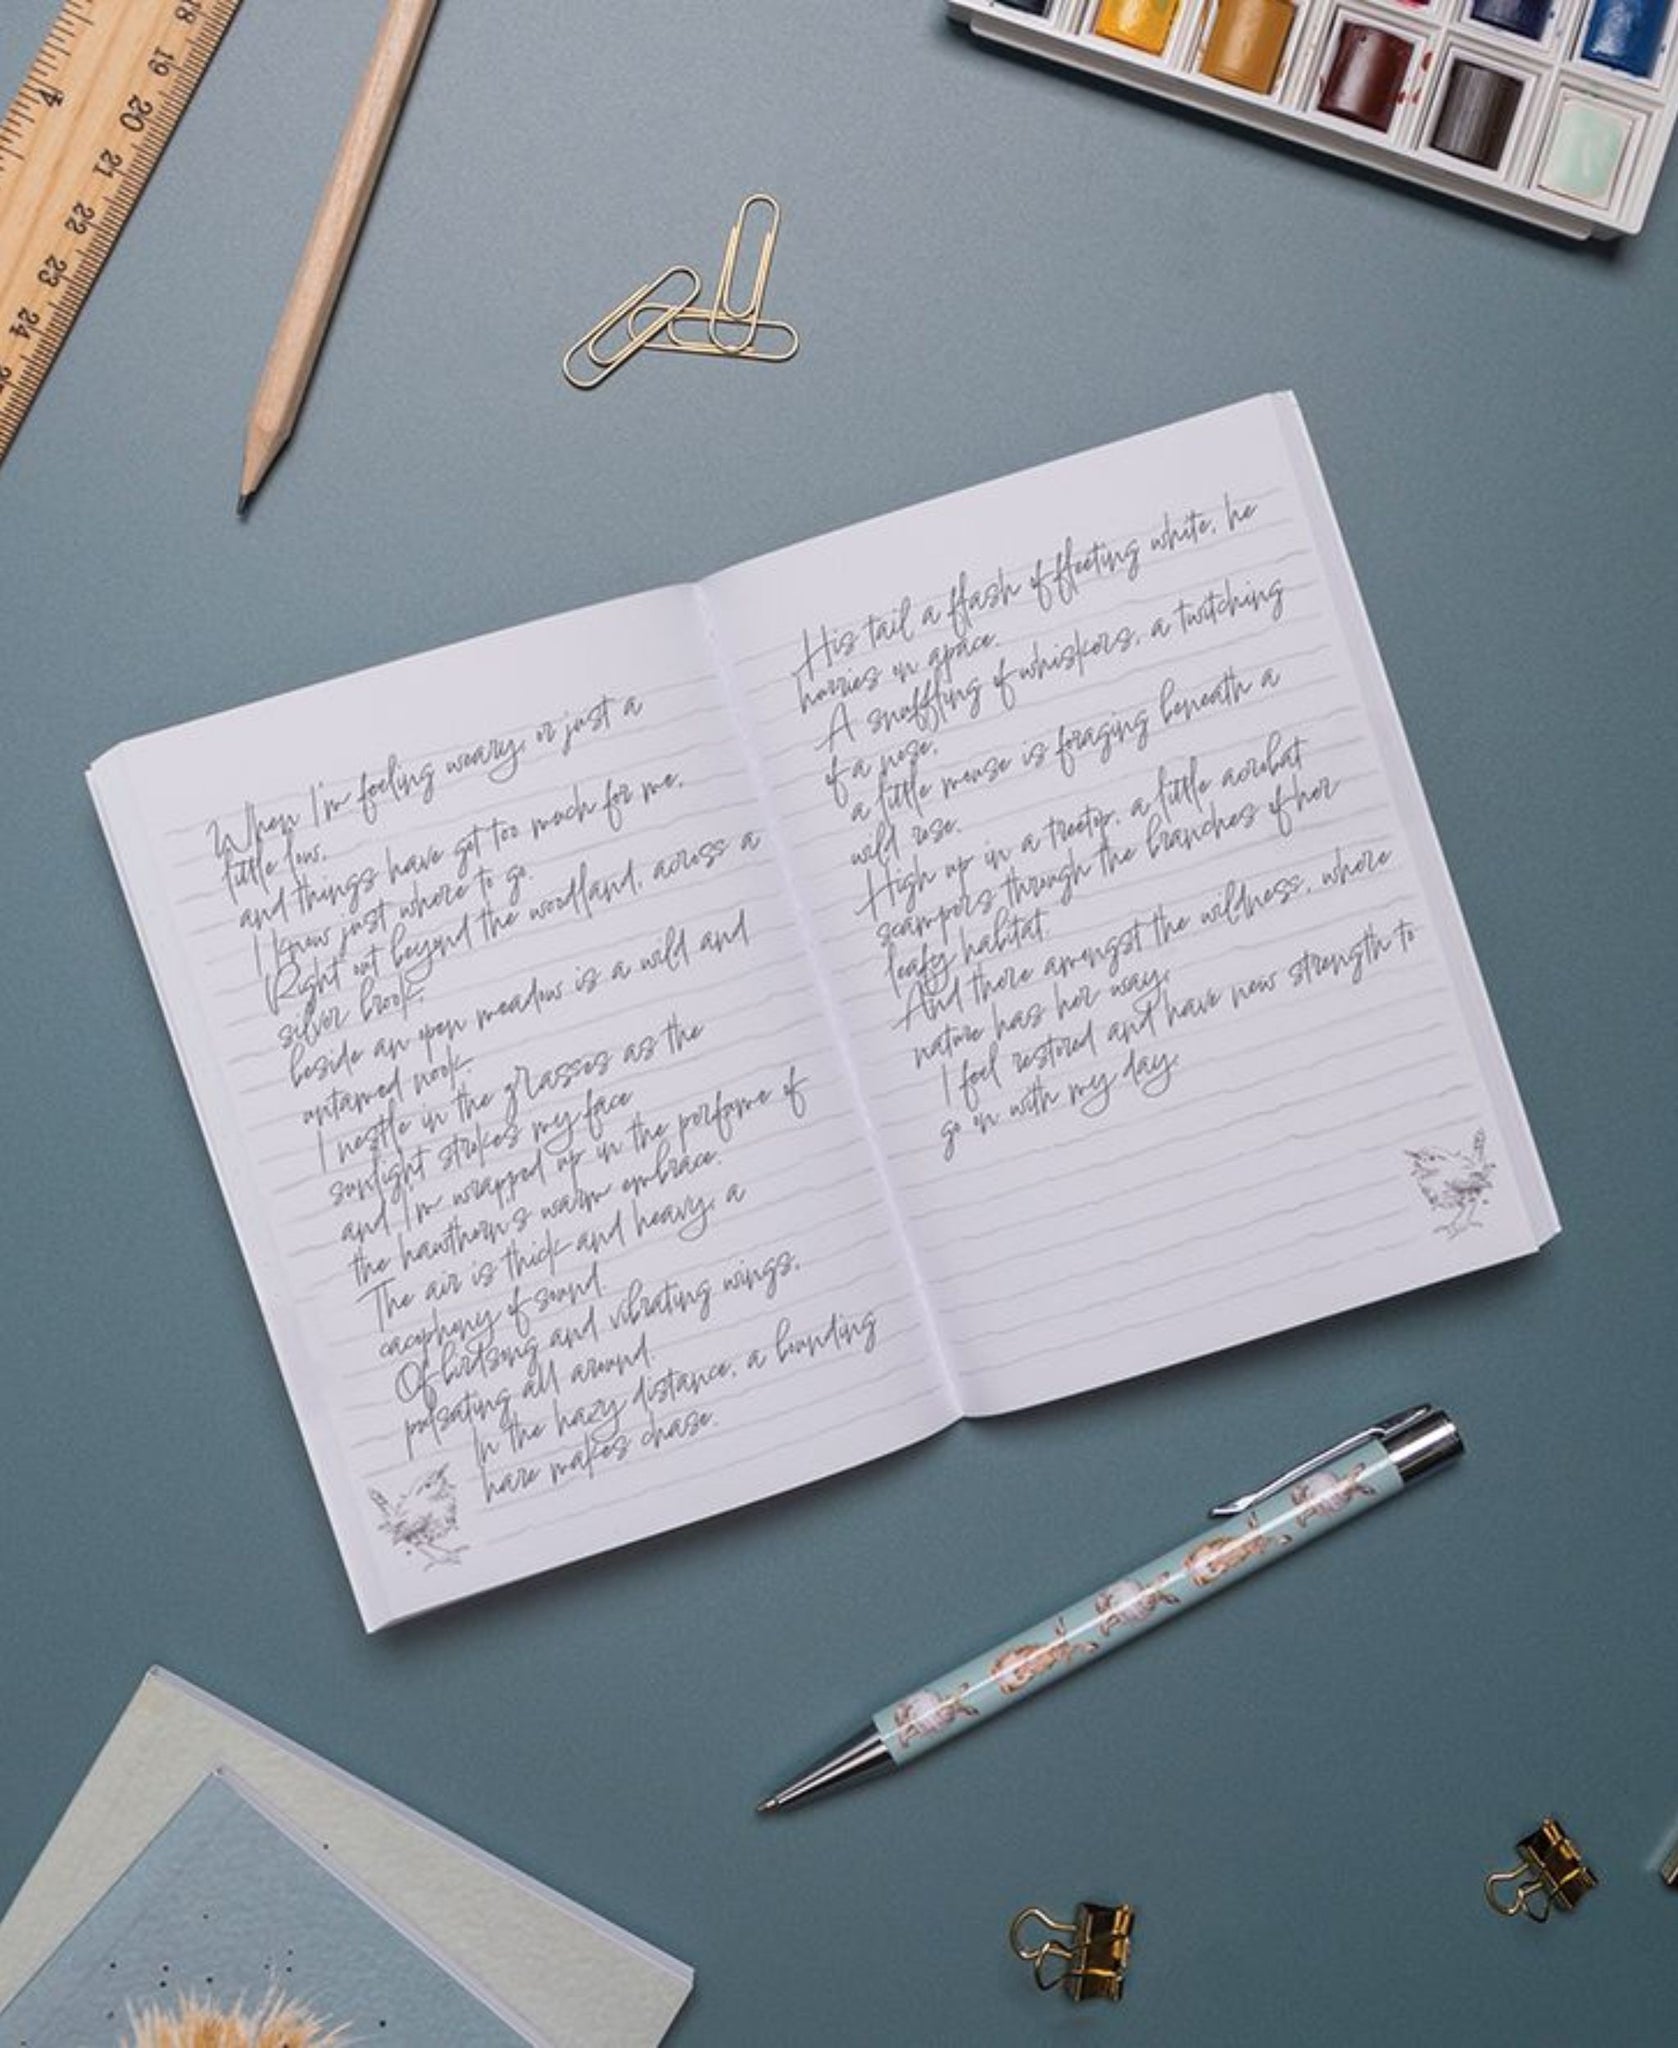 18
19
20
21
22
23
24
4
When I'm feeling weary, or just a
little low,
and things have got too much for me,
I know just where to go.
Right out beyond the woodland, across a
silver brook,
beside an open meadow is a wild and
untamed nook.
I nestle in the grasses as the
sunlight strokes my face
and I'm wrapped up in the perfume of
the hawthorn's warm embrace.
The air is thick and heavy, a
cacophony of sound.
Of birdsong and vibrating wings,
pulsating all around.
In the hazy distance, a bounding
hare makes chase.
His tail a flash of fleeting white, he
hurries on apace.
A snuffling of whiskers, a twitching
of a nose,
a little mouse is foraging beneath a
wild rose.
High up in a treetop, a little acrobat
scampers through the branches of her
leafy habitat.
And there amongst the wildness, where
nature has her way,
I feel restored and have new strength to
go on with my day.